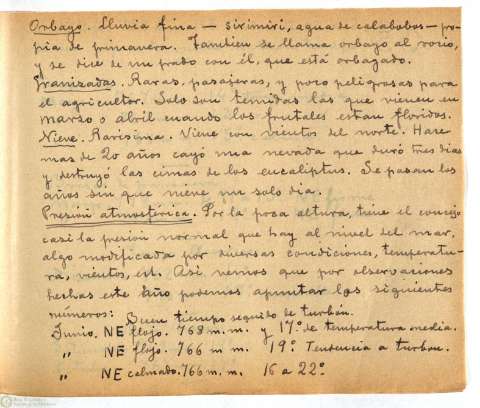 Orbayo. Lluvia fina — sirimiri, agua de calabobos — pro-
pia de primavera. Tambien se llama orbayo al rocío,
y se dice de un prado con él, que está orbayado.
Granizadas. Raras, pasajeras, y poco peligrosas para
el agricultor. Solo son temidas las que vienen en
marzo o abril cuando los frutales estan floridos.
Nieve. Rarísima. Viene con vientos del norte. Hace
mas de 20 años cayó una nevada que duró tres dias
y destruyó las cimas de los eucaliptus. Se pasan los
años sin que nieve un solo dia.
Presión atmosférica. Por la poca altura, tiene el concejo
casi la presión normal que hay al nivel del mar,
algo modificada por diversas condiciones, temperatu-
ra, vientos, est. Asi vemos que por observaciones
hechas este año podemos apuntar los siguientes
números: Buen tiempo seguido de turbón.
Junio. NE flojo. 768 m.m. y 17º de temperatura media.
„ NE flojo. 766 m m. 19º Tendencia a turbón.
„ NE calmado. 766 m. m. 16 a 22º